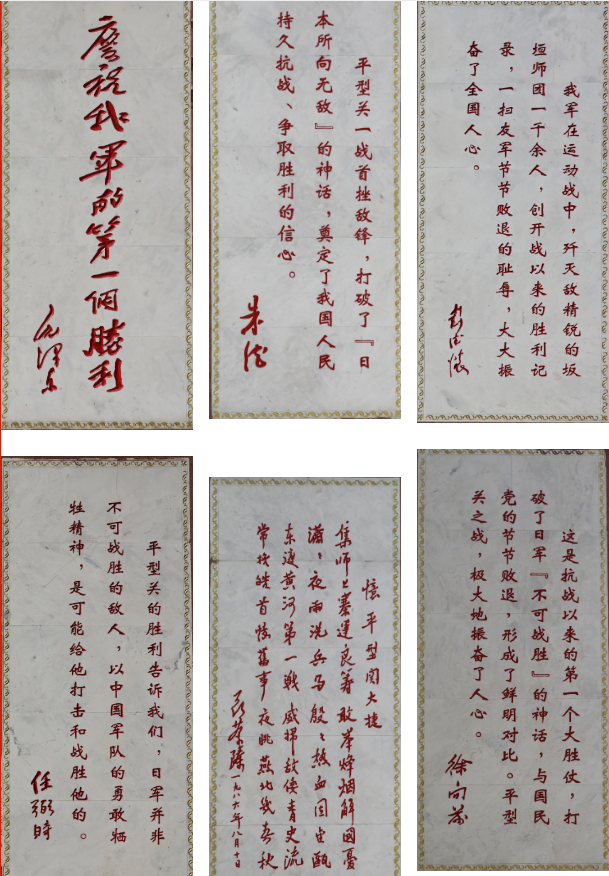 慶祝我軍的第一個勝利
毛泽东
平型关一战首挫敌锋，打破了『日
本所向无敌』的神话，奠定了我国人民
持久抗战、争取胜利的信心。
朱德
我军在运动战中，歼灭敌精锐的坂
垣师团一千余人，创开战以来的胜利记
录，一扫友军节节败退的耻辱，大大振
奋了全国人心。
彭德懷
平型关的胜利告诉我们，日军并非
不可战胜的敌人，以中国军队的勇敢牺
牲精神，是可能给他打击和战胜他的。
任弼時
憶平型関大捷
集师上寨運良籌敢举烽烟解國憂
潇々夜雨洗兵马殷々热血固金甌
东渡黄河第一戰威掃敌倭青史流
常扶皓首憶舊事夜眺燕北幾春秋
聂荣臻一九八六年八月十日
这是抗战以来的第一个大胜仗，打
破了日军『不可战胜』的神话，与国民
党的节节败退，形成了鲜明对比。平型
关之战，极大地振奋了人心。
徐向前